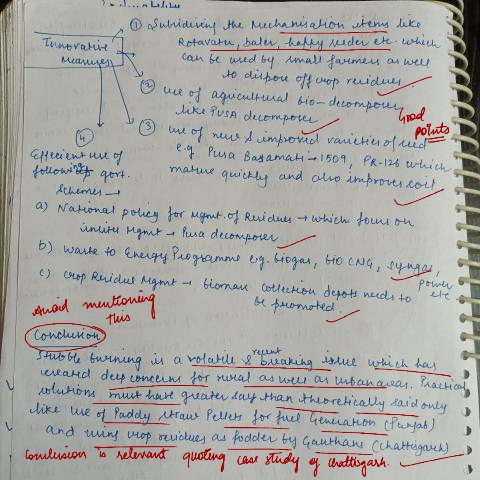 ① Subsidizing the Mechanisation items like
Rotavator, baler, happy seeder etc. which
can be used by small farmers as well
to dispose off crop residues
Innovative
measures
② use of agricultural bio-decomposer
like PUSA decomposer
Good
points
③ use of new & improved varieties of seed
e.g Pusa Basamati-1509, PR-126 which
mature quickly and also improves soil
④
Efficient use of
following govt.
schemes →
a) National policy for Mgmt. of Residues → which focus on
insitu Mgmt → Pusa decomposer
b) Waste to Energy Programme e.g. biogas, bio CNG, syngas,
power etc
c) Crop Residue Mgmt → biomass collection depots needs to
be promoted.
Avoid mentioning
this
Conclusion
Stubble burning is a volatile & recent breaking issue which has
created deep concerns for rural as well as urban areas. Practical
solutions must have greater say than theoretically said only
like use of Paddy straw Pellets for fuel Generation (Punjab)
and using crop residues as fodder by Gauthans (Chattisgarh)
Conclusion is relevant quoting case study of chattisgarh.